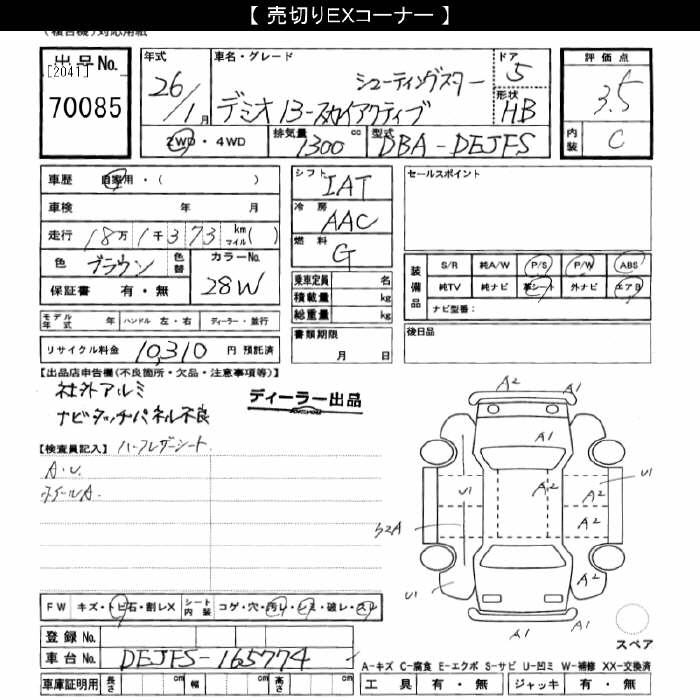 【 売切りEXコーナー 】
(複合機)対応用紙
出品No.
[2041]
70085
年式
26/1月
車名・グレード
シューティングスター
デミオ 13-スカイアクティブ
ドア
5
形状
HB
評価点
3.5
内装
C
2WD・4WD
排気量
1300 cc
型式
DBA-DEJFS
車歴 自家用・( )
車検 年 月
走行 18万1千373 km マイル( )
色 ブラウン 色替
カラーNo.
28W
保証書 有・無
シフト
IAT
冷房
AAC
燃料
G
乗車定員 名
積載量 kg
総重量 kg
セールスポイント
装備品
S/R 純A/W P/S P/W ABS
純TV 純ナビ 革シート 外ナビ エアB
ナビ型番:
モデル年式 年 ハンドル 左・右 ディーラー・並行
リサイクル料金 10,310 円 預託済
書類期限
月 日
後日品
【出品店申告欄(不良箇所・欠品・注意事項等)】
社外アルミ
ナビタッチパネル不良
ディーラー出品
【検査員記入】 ハーフレザーシート
A・U
ホイールA
A2
A1
A1
U1
A2
A2
U1
A2
S2A
U1
A1
A1
スペア
FW キズ・トビ石・割レX
シート内装 コゲ・穴・汚レ・シミ・破レ・スレ
登録 No.
車台 No. DEJFS-165774
A-キズ C-腐食 E-エクボ S-サビ U-凹ミ W-補修 XX-交換済
車庫証明用 長さ cm 幅 cm 高さ cm
工具 有・無 ジャッキ 有・無